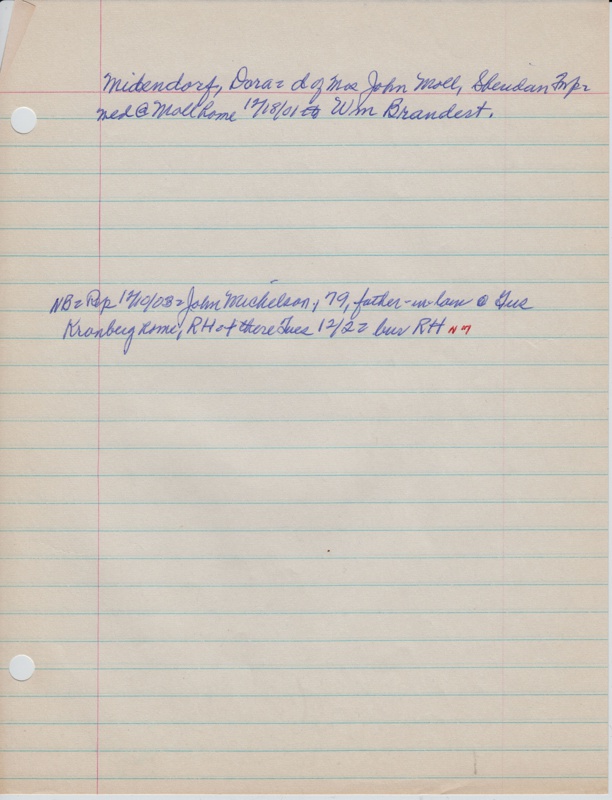 Mitendorf, Dora = d of Mrs John Moll, Sheridan Twp =
wed @ Moll home 12/18/01 to Wm Brandest.
NB = Rep 12/10/03 = John Michelson, 79, father-in-law @ Gus
Kranberg home, RH + there Tues 12/2 = bur RH